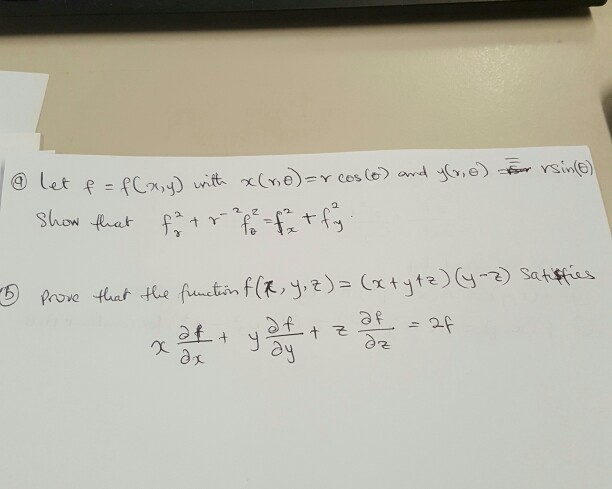 ⓐ Let f = f(x,y) with x(r,θ)=r cos(θ) and y(r,θ) = rsin(θ)
Show that f_r² + r⁻² f_θ² = f_x² + f_y².
ⓑ Prove that the function f(x,y,z) = (x+y+z)(y-z) satisfies
x ∂f/∂x + y ∂f/∂y + z ∂f/∂z = 2f